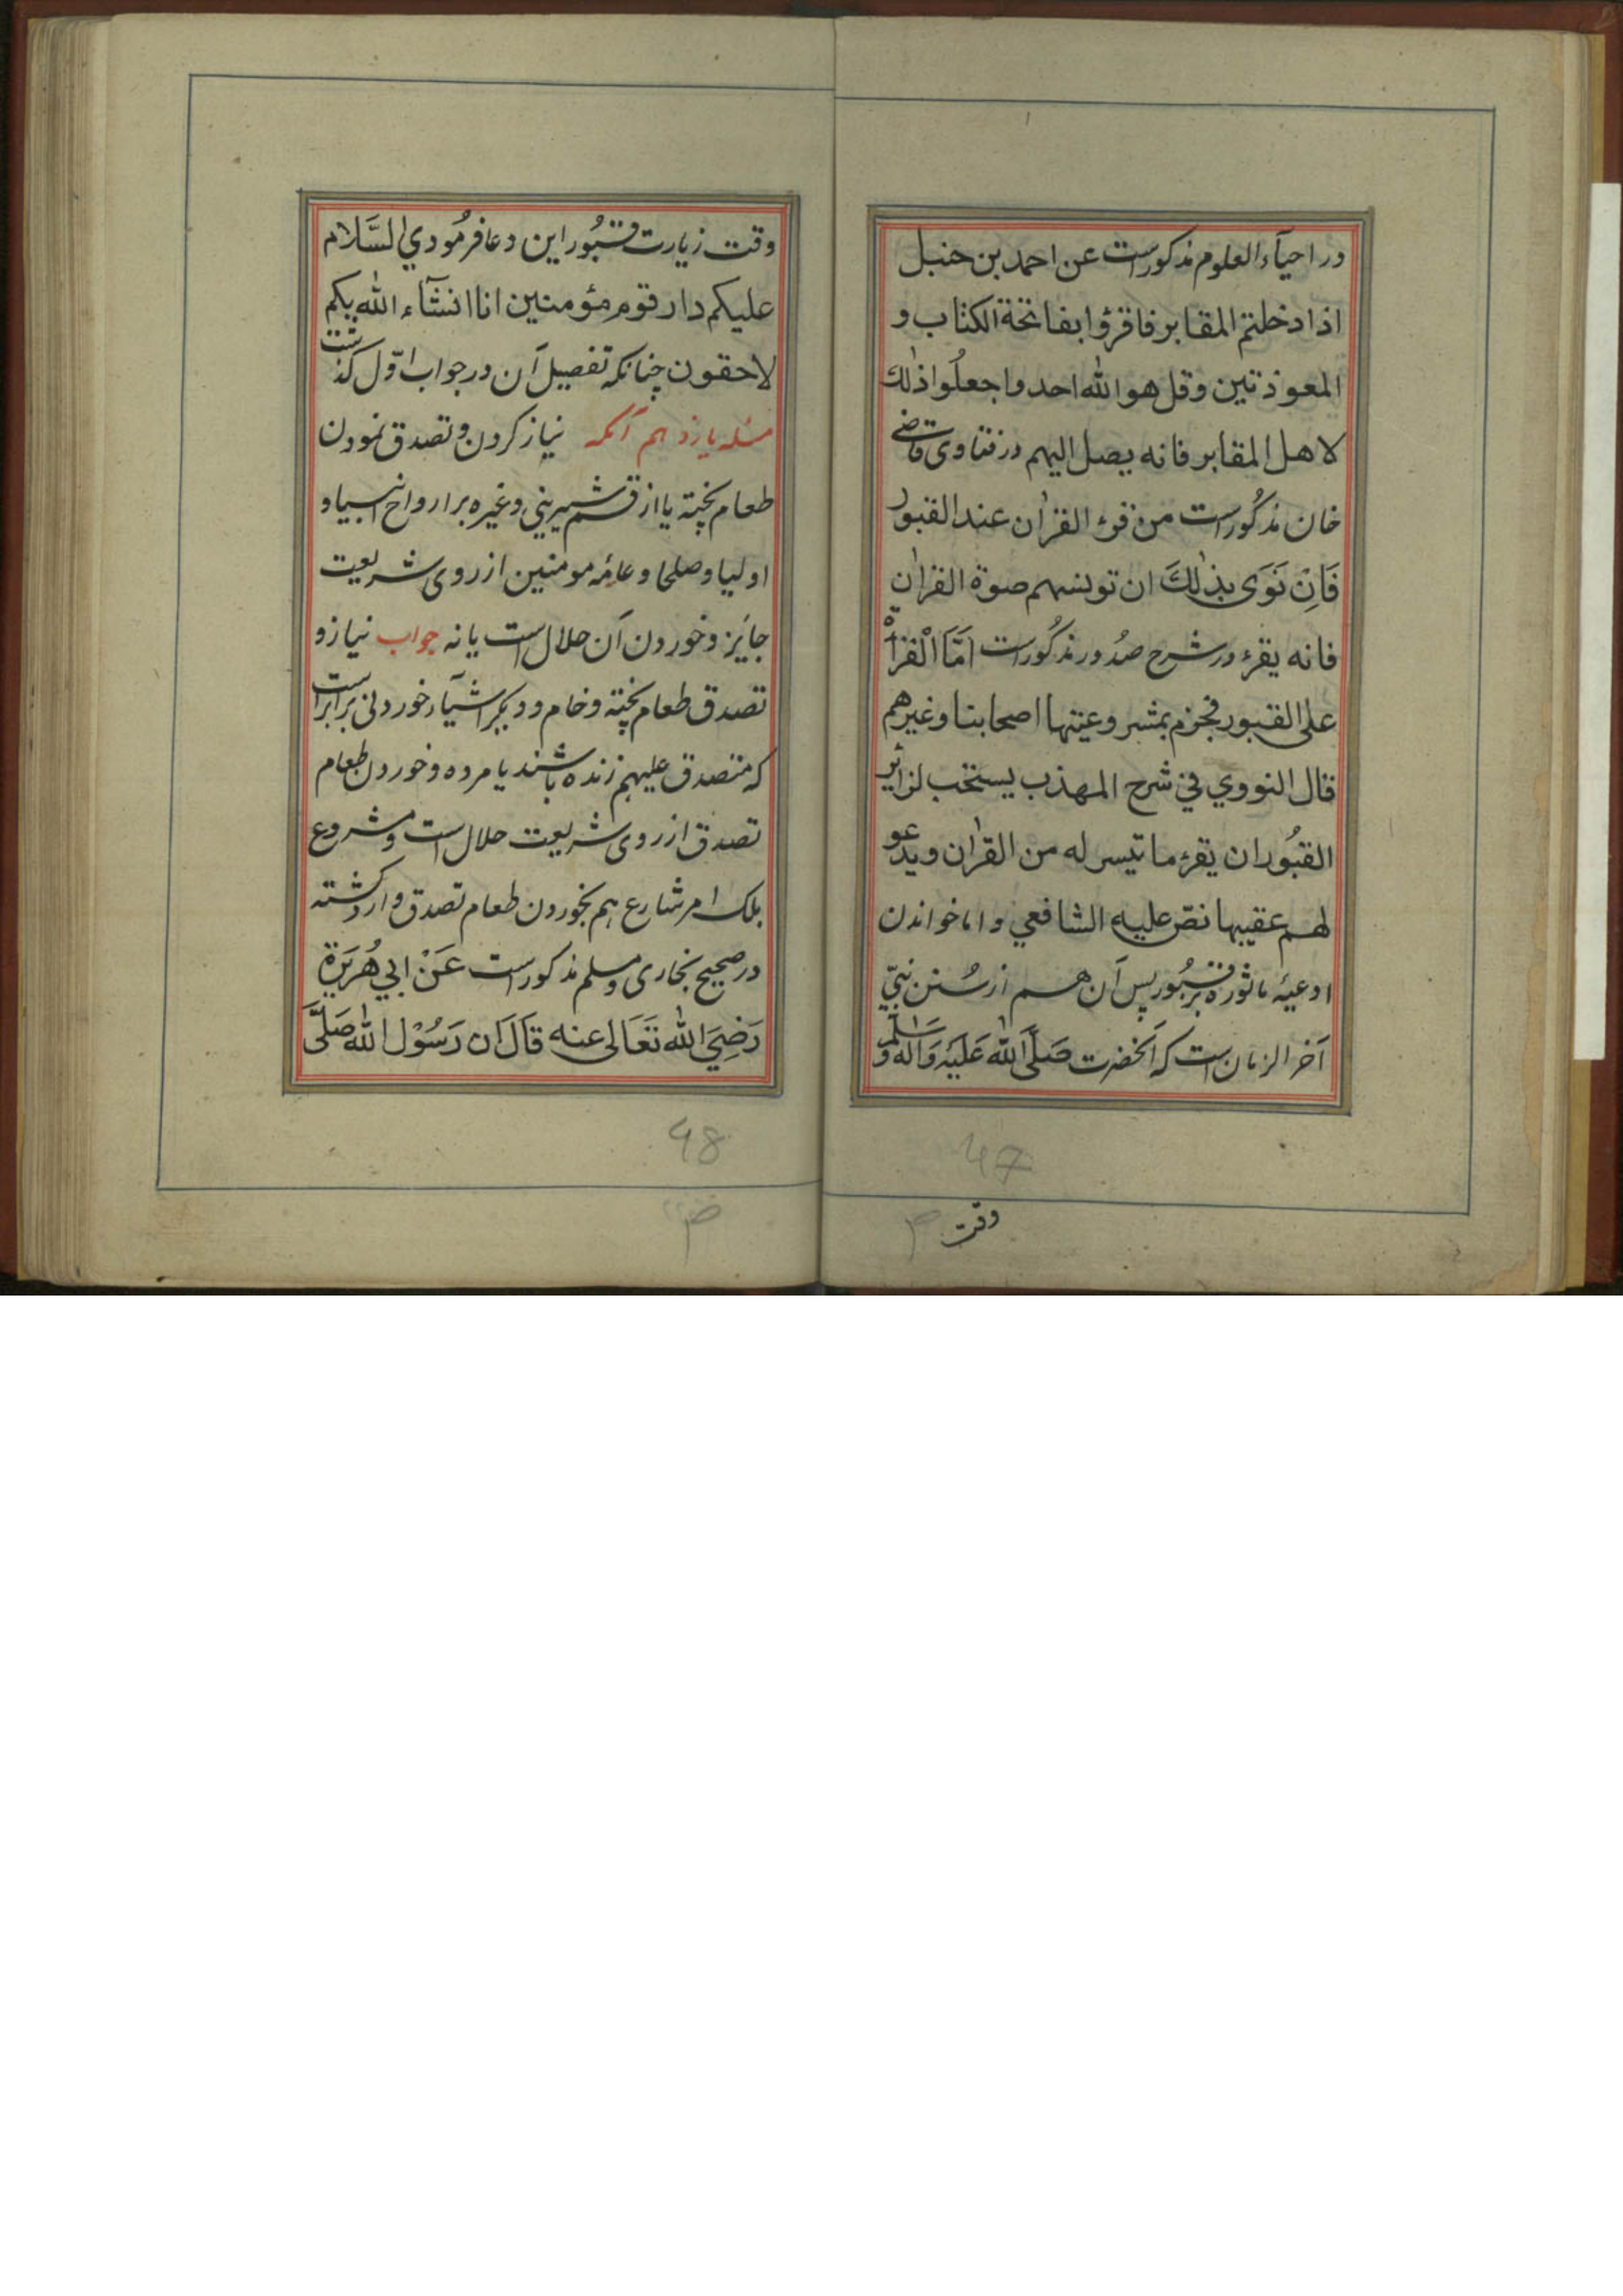 در احیآء العلوم مذکور است عن احمد بن حنبل
اذا دخلتم المقابر فاقرؤا بفاتحة الکتاب و
المعوذتین وقل هو الله احد واجعلُوا ذٰلك
لاهل المقابر فانه یصل الیهم در فتاوی قاضے
خان مذکُور است من قرء القرٰان عند القبور
فَاِنْ نَوَی بِذٰلكَ ان تونسهم صوة القرٰان
فانه یقرء در شرح صدُور مذکُور است اَمَّا الْقرْأة
علی القبور فجزم بمشروعیتها اصحابنا وغیرهم
قال النووي في شرح المهذب یستحب لزائر
القبُور ان یقرء ما تیسر له من القرٰان ویدعو
لهم عقیبها نصّ علیه الشافعي و اما خواندن
ادعیهٔ ماثوره بر قبُور پس آن هم از سُنن نبيّ
آخر الزمان است که آنحضرت صَلَّی اللهُ عَلَیْهِ وَاٰله وَسَلَّمَ
47
وقت
وقت زیارت قبُور این دعا فرمُودي السَّلام
علیکم دار قوم مؤمنین انا انشآء الله بکم
لاحقون چنانکه تفصیل آن در جواب اوّل گذشت
مسٔله یازدهم آنکه نیاز کردن و تصدق نمودن
طعام پخته یا از قسم شیرینی وغیره بر ارواح انبیا و
اولیا و صلحا و عامهٔ مومنین از روی شریعت
جایٔز و خوردن آن حلال است یا نه جواب نیاز و
تصدق طعام پخته و خام و دیگر اشیآء خوردنی برابر است
که متصدق علیهم زنده باشند یا مرده و خوردن طعام
تصدق از روی شریعت حلال است و مشروع
بلک امر شارع هم بخوردن طعام تصدق وارد گشته
در صحیح بخاری و مسلم مذکور است عَنْ ابي هُرَیرَة
رَضِيَ الله تَعَالی عنه قَالَ ان رَسُوْل الله صَلَّی
48